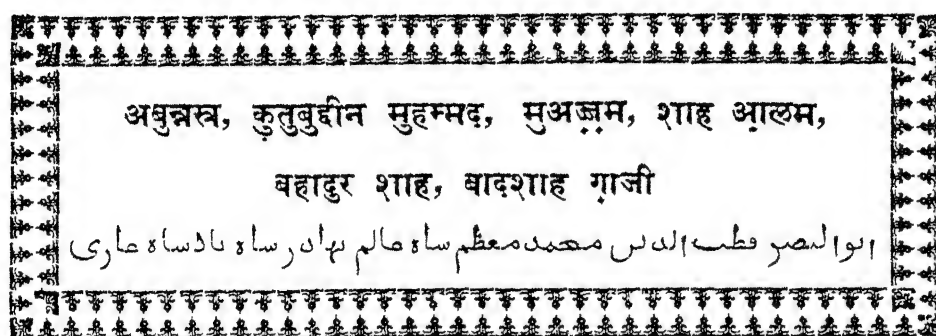 अबुन्नस्र, क़ुतुबुद्दीन मुहम्मद, मुअज़्ज़म, शाह आ़लम,
बहादुर शाह, बादशाह ग़ाजी
ابوالنصر قطب الدین محمد معظم ساه عالم بهادر ساه بادساه عاری